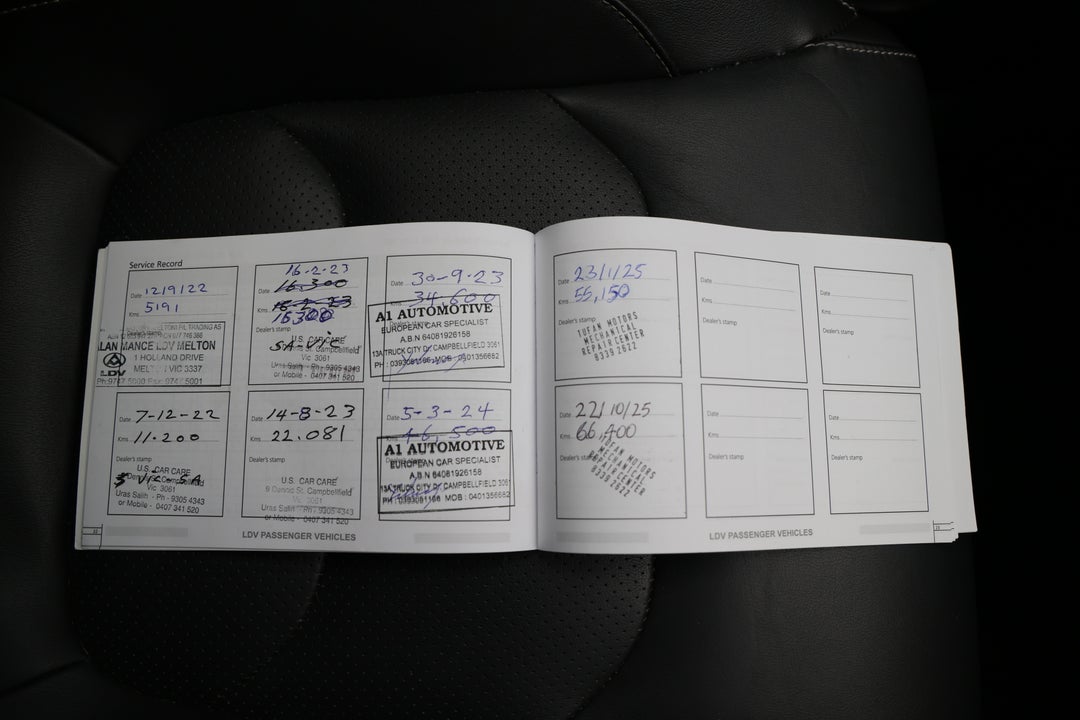 Service Record
Date 12/9/22
Kms 5191
Dealer's stamp
LAN MANCE LDV MELTON
1 HOLLAND DRIVE
MELTON VIC 3337
LDV
Date 7-12-22
Kms 11.200
Dealer's stamp
VIC-SA
U.S. CAR CARE
Vic 3061
Uras Salih - Ph - 9305 4343
or Mobile - 0407 341 520
16-2-23
Date 16,300
16-2-23
16300
Dealer's stamp
SA-VIC
U.S. CAR CARE
Campbellfield
Vic 3061
Uras Salih - Ph - 9305 4343
or Mobile - 0407 341 520
Date 14-8-23
Kms 22.081
Dealer's stamp
U.S. CAR CARE
Campbellfield
Vic 3061
Uras Salih - Ph - 9305 4343
or Mobile - 0407 341 520
Date 30-9-23
Kms 34,600
A1 AUTOMOTIVE
EUROPEAN CAR SPECIALIST
A.B.N 64081926158
13A TRUCK CITY DR CAMPBELLFIELD 3061
PH : 0393081166 MOB : 0401356682
Date 5-3-24
Kms 46,500
A1 AUTOMOTIVE
EUROPEAN CAR SPECIALIST
A.B.N 64081926158
13A TRUCK CITY DR CAMPBELLFIELD 3061
PH : 0393081166 MOB : 0401356682
LDV PASSENGER VEHICLES
Date 23/1/25
Kms 55,150
Dealer's stamp
TUFAN MOTORS
MECHANICAL
REPAIR CENTER
8339 2622
Date 22/10/25
Kms 66,400
Dealer's stamp
TUFAN MOTORS
MECHANICAL
REPAIR CENTER
8339 2622
Date
Kms
Dealer's stamp
Date
Kms
Dealer's stamp
Date
Kms
Dealer's stamp
Date
Kms
Dealer's stamp
LDV PASSENGER VEHICLES